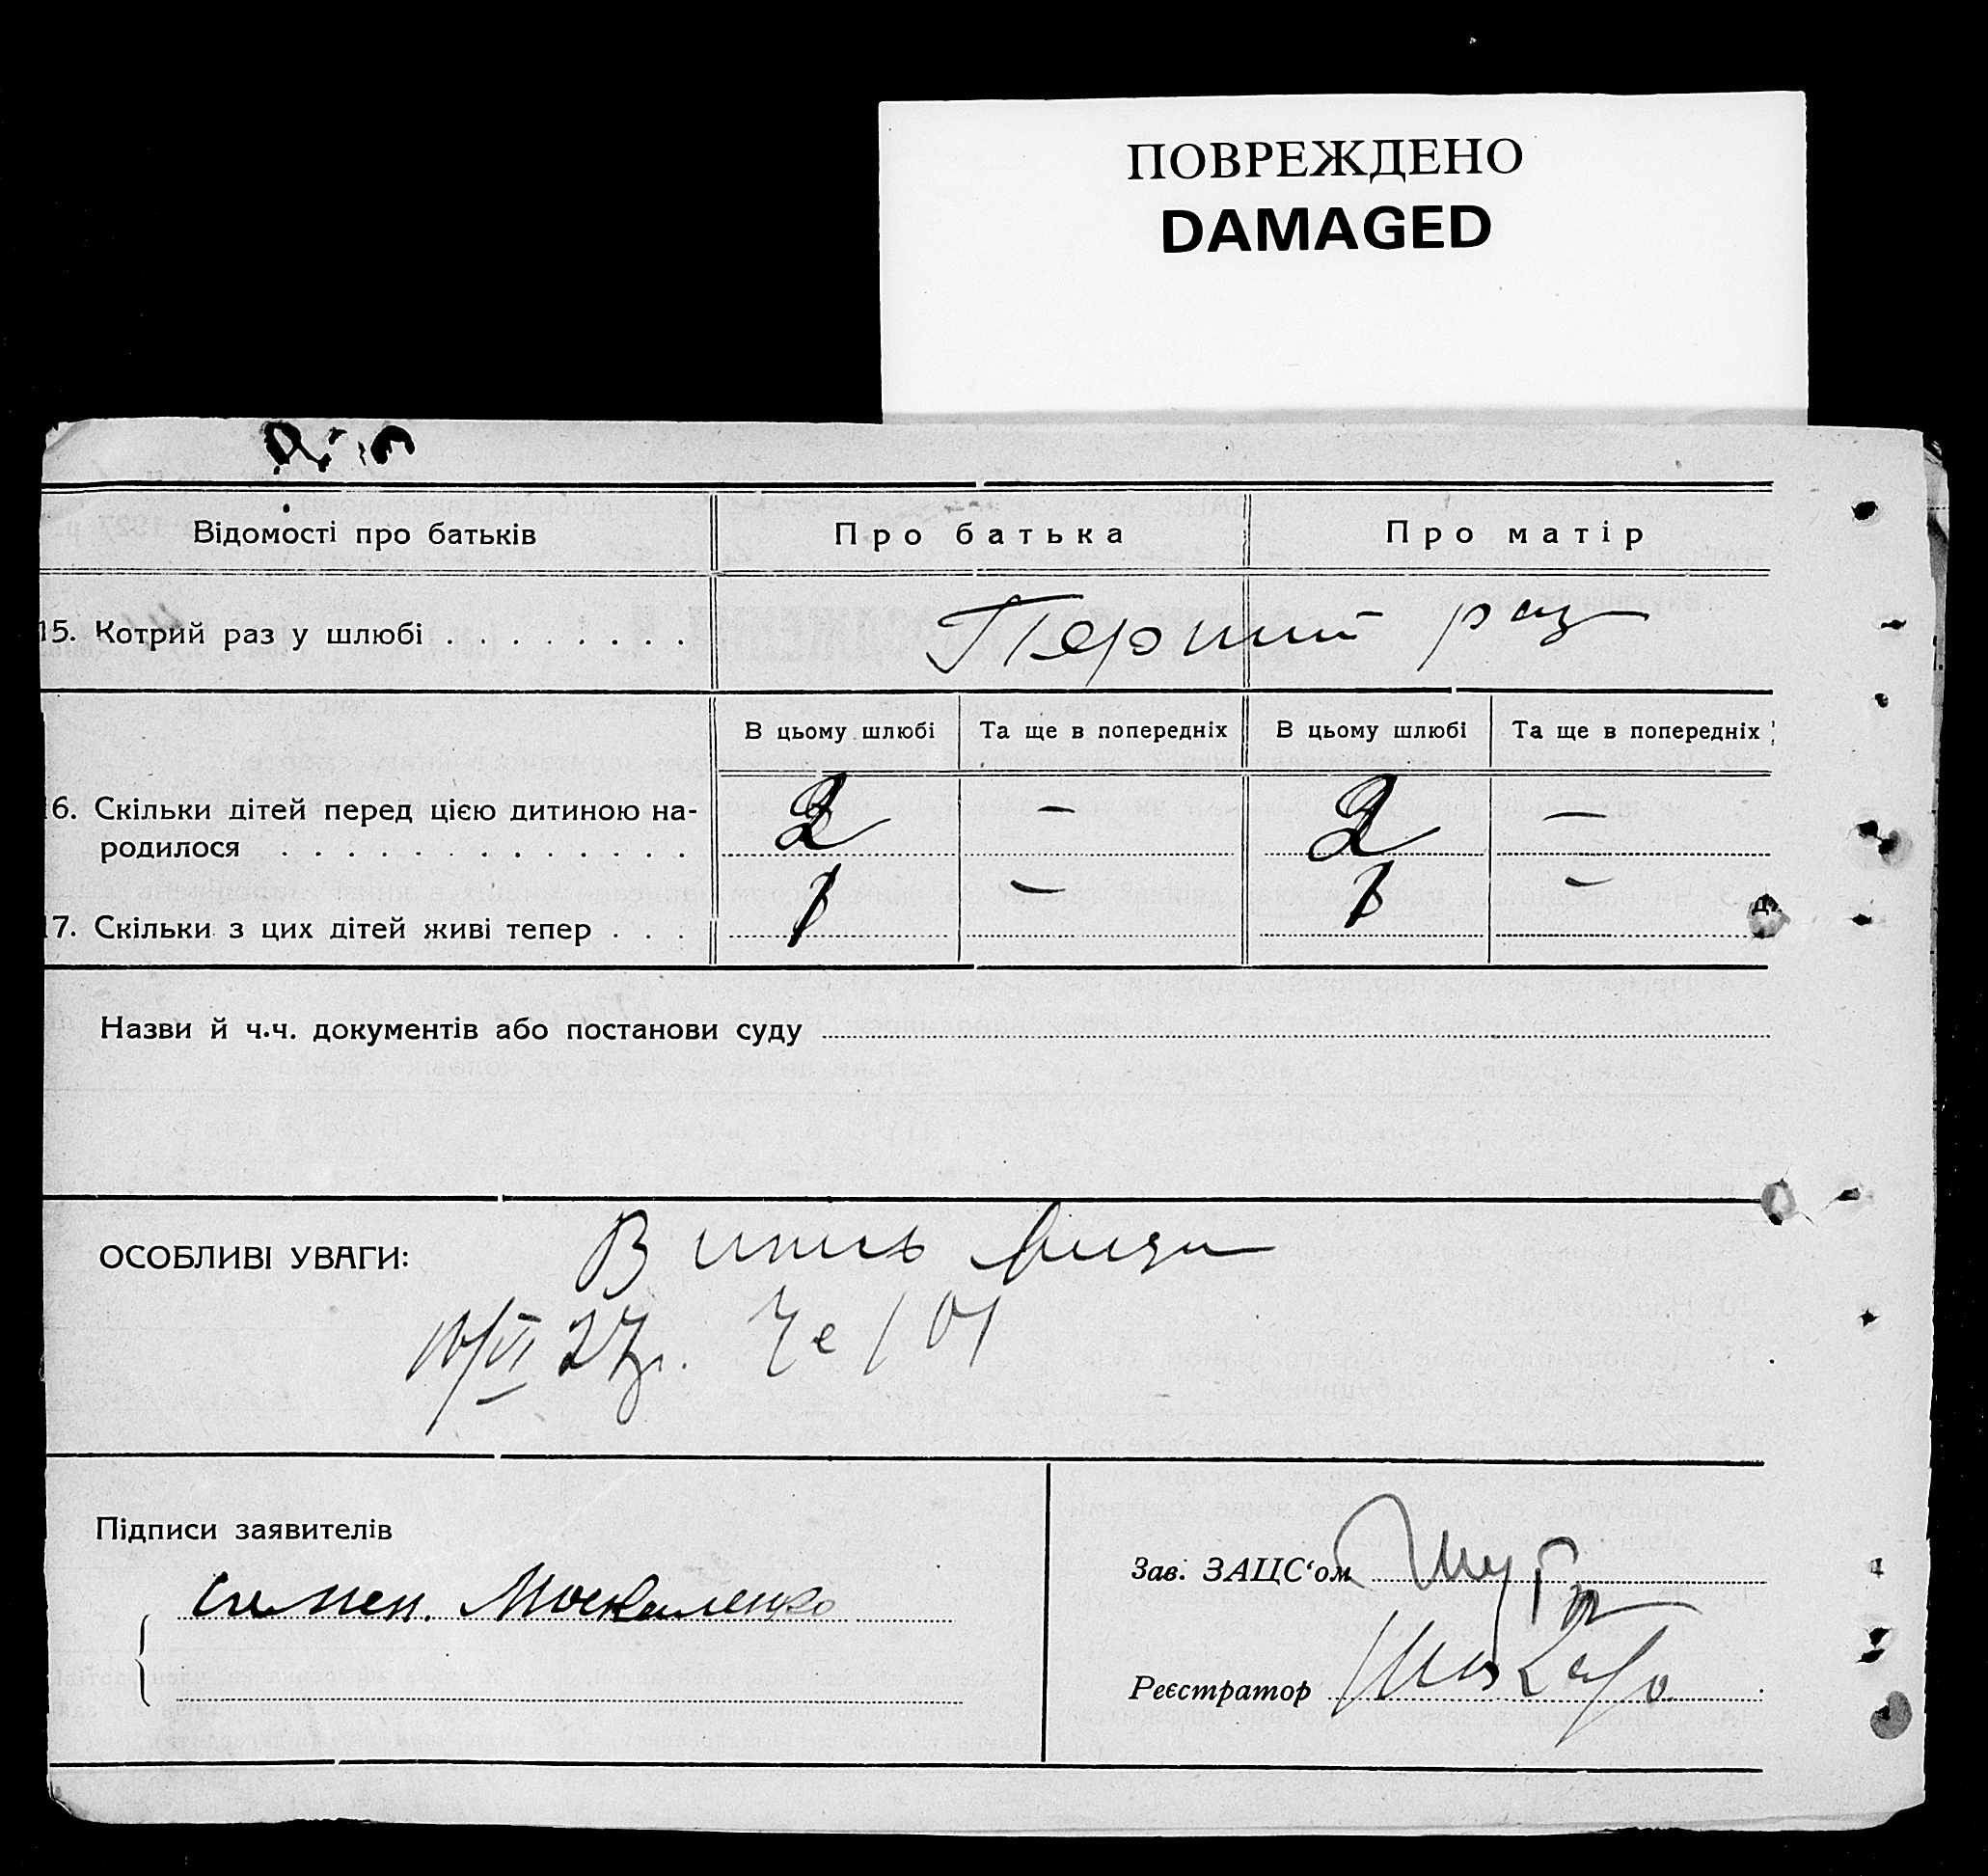 ПОВРЕЖДЕНО
DAMAGED
Відомості про батьків
Про батька
Про матір
15. Котрий раз у шлюбі . . . . . . . .
Перший раз
В цьому шлюбі
Та ще в попередніх
В цьому шлюбі
Та ще в попередніх
16. Скільки дітей перед цією дитиною на-
родилося . . . . . . . . . . . . .
2 – 2 –
17. Скільки з цих дітей живі тепер . . .
1 – 1 –
Назви й ч.ч. документів або постанови суду
ОСОБЛИВІ УВАГИ:
Випись
10/VI 27 р. 101
Підписи заявителів
Симен. Москаленко
Зав. ЗАЦС‘ом
Реєстратор